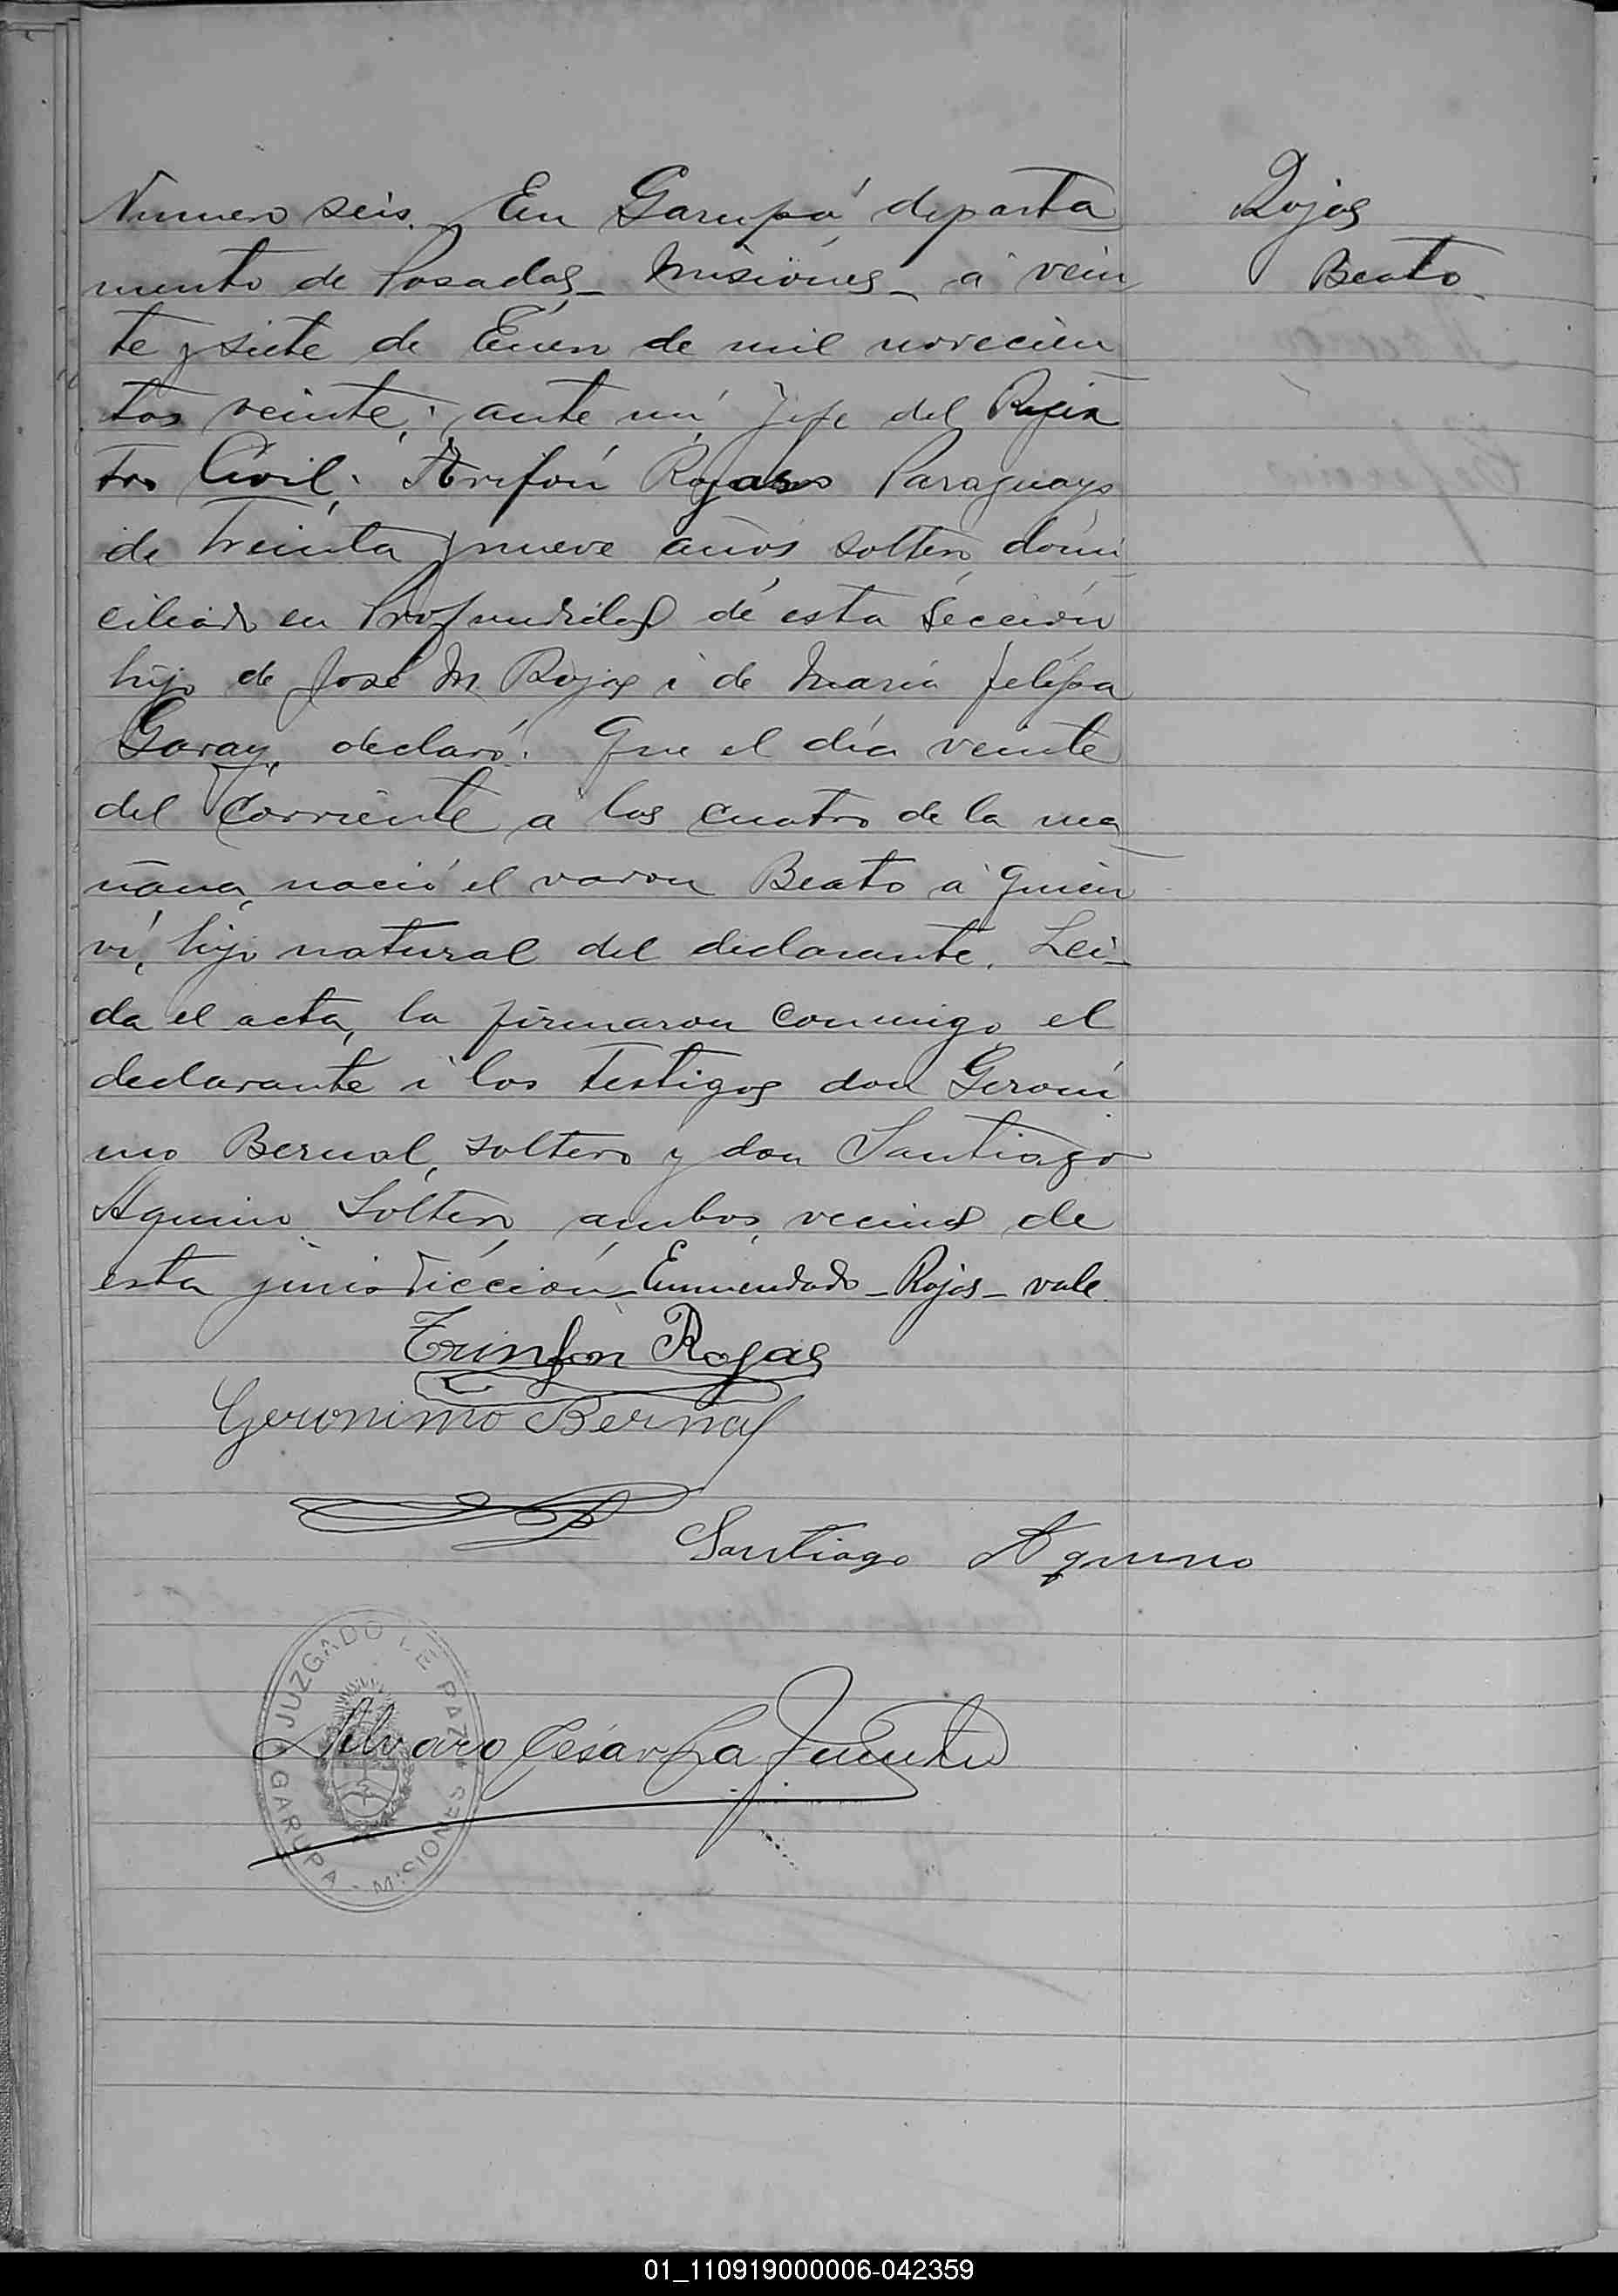 Numero seis. En Garupá departa
mento de Posadas_ Misiones_ á vein
te y siete de Enero de mil novecien
tos veinte; ante mí, Jefe del Regis
tro Civil; Trifón Rojas Paraguayo
de treinta y nueve años soltero, domi
ciliado en Profundidad de esta Sección
hijo de José M. Rojas i de María Felipa
Garay, declaró: Que el día veinte
del corriente á las cuatro de la ma
ñana, nació el varon Beato á quien
ví, hijo natural del declarante. Lei_
da el acta, la firmaron conmigo el
declarante i los testigos don Geroni
mo Bernal, soltero y don Santiago
Aquino soltero, ambos vecinos de
esta jurisdicción_ Enmendado_ Rojas_ vale.
Rojas
Beato
Trinfon Rojas
Geronimo Bernal
Santiago Aquino
JUZGADO DE PAZ
GARUPA - MISIONES
Alvaro César La Fuente
01_110919000006-042359